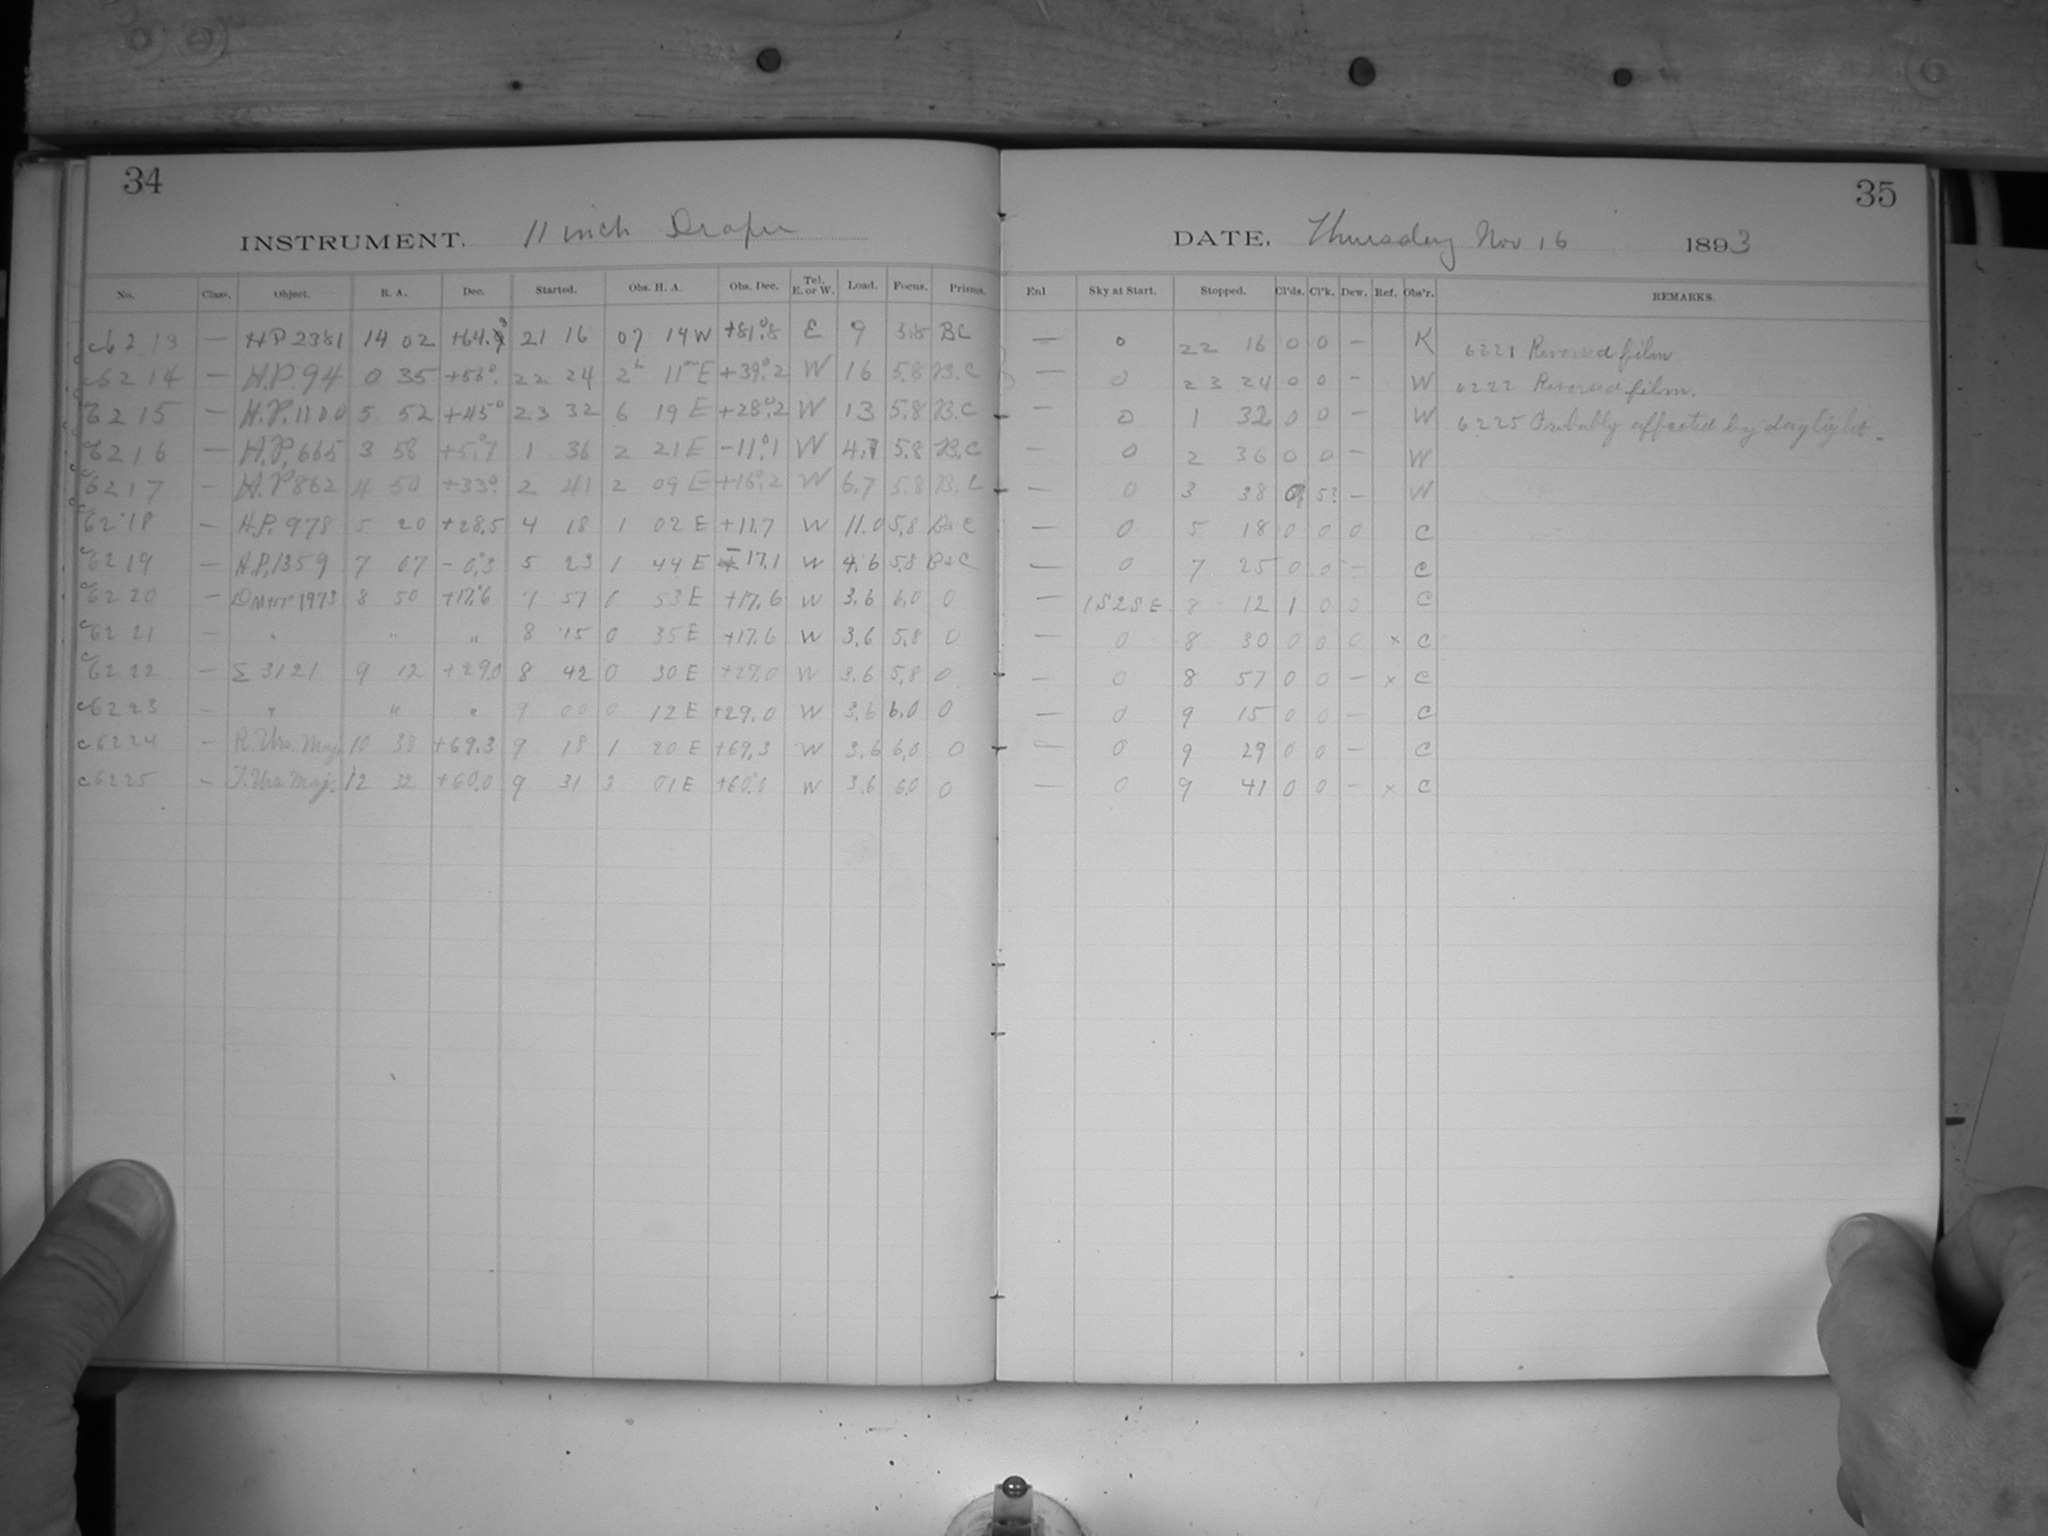 34
INSTRUMENT. 11 inch Draper
No. Class. Object. R. A. Dec. Started. Obs. H. A. Obs. Dec. Tel. E. or W. Load. Focus. Prisms.
c6213 — HP 2381 14 02 +64.3 21 16 07 14 W +81°.8 E 9 3.8 BC
c6214 — H.P. 94 0 35 +56°. 22 24 2h 11m E +39°.2 W 16 5.8 B.C
c6215 — H.P. 1100 5 52 +45° 23 32 6 19 E +28°.2 W 13 5.8 B.C
c6216 — H.P. 665 3 58 +5°.7 1 36 2 21 E −11°.1 W 4.7 5.8 B.C
c6217 — H.P 862 4 50 +33°. 2 41 2 09 E +16°.2 W 6.7 5.8 B.C
c6218 — H.P. 978 5 20 +28.5 4 18 1 02 E +11.7 W 11.0 5.8 B&C
c6219 — H.P. 1359 7 07 −0°.3 5 23 1 44 E −17.1 W 4.6 5.8 B&C
c6220 — 1973 8 50 +17°.6 7 57 0 53 E +17.6 W 3.6 6.0 0
c6221 — " " " 8 15 0 35 E +17.6 W 3.6 5.8 0
c6222 — Σ 3121 9 12 +29.0 8 42 0 30 E +29.0 W 3.6 5.8 0
c6223 — " " " 9 00 0 12 E +29.0 W 3.6 6.0 0
c6224 — R. Urs. Maj. 10 38 +69.3 9 18 1 20 E +69.3 W 3.6 6.0 0
c6225 — T. Urs. Maj. 12 32 +60.0 9 31 3 01 E +60.0 W 3.6 6.0 0
35
DATE. Thursday Nov 16 1893
Enl Sky at Start. Stopped. Cl'ds. Cl'k. Dew. Ref. Obs'r. REMARKS.
— 0 22 16 0 0 — K 6221 Reversed film
— 0 23 24 0 0 — W 6222 Reversed film.
— 0 1 32 0 0 — W 6225 Probably affected by daylight.
— 0 2 36 0 0 — W
— 0 3 38 0? 5? — W
— 0 5 18 0 0 0 C
— 0 7 25 0 0 — C
— 1S2SE 8 12 1 0 0 C
— 0 8 30 0 0 0 x C
— 0 8 57 0 0 — x C
— 0 9 15 0 0 — C
— 0 9 29 0 0 — C
— 0 9 41 0 0 — x C